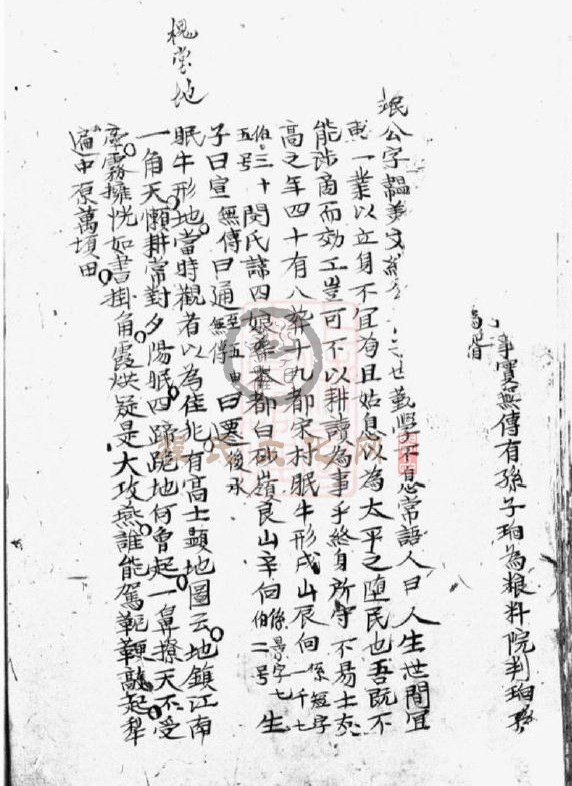 事實無傳有孫子珀為粮料院判珀
珉公字韞美文 世勤學不怠常語人曰人生世間宜
専一業以立身不宜苟且姑息以為太平之堕民也吾既不
能涉商而効工豈可不以耕讀為事乎終身所守不易士夫
高之年四十有八葬十九都宋村眠牛形戌山辰向係短字一千七
伯三十五号閔氏諱四娘葬本都白砂嶺艮山辛向係景字七伯二号生
子曰宣無傳曰通至五世無傳曰遷後承
槐堂地
眠牛形地當時觀者以為佳兆有高士題地圖云地鎮江南
一角天懶耕常對夕陽眠四蹄跪地何曾起一鼻撩天不受
牽霧擁恍如書掛角霞燒疑是大攻燕誰能駕軛鞭敲起犁
遍中原萬頃田